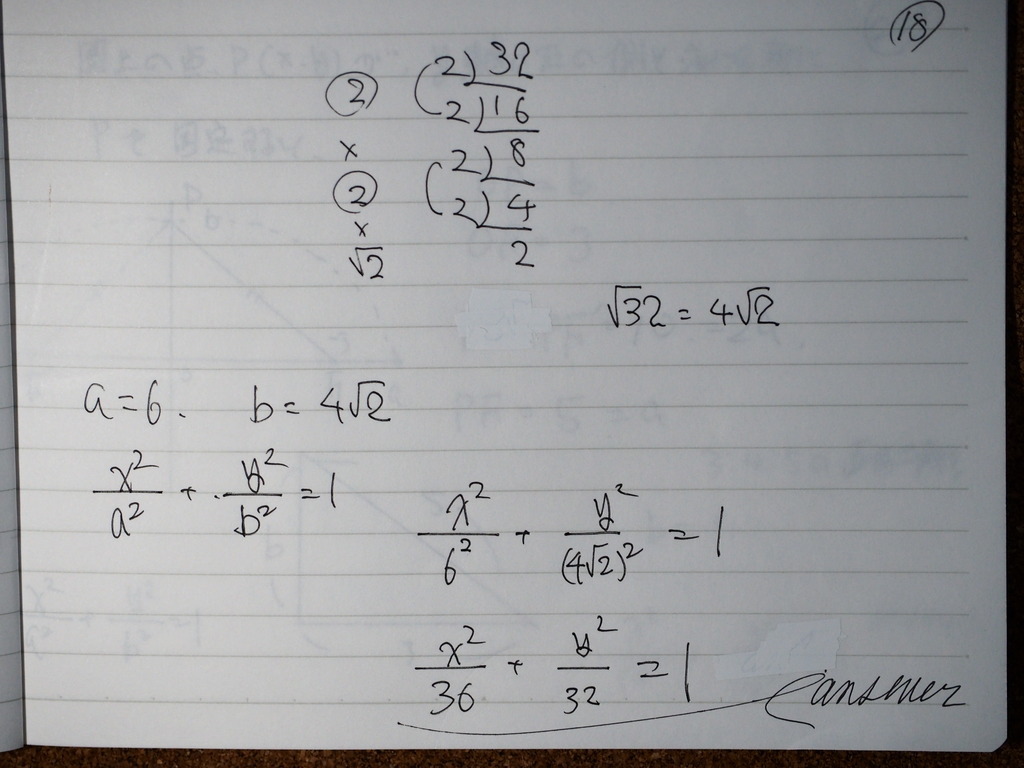 ⑱
② ( 2) 32
2) 16
×
② ( 2) 8
2) 4
×
√2 2
√32 = 4√2
a = 6. b = 4√2
x²/a² + y²/b² = 1
x²/6² + y²/(4√2)² = 1
x²/36 + y²/32 = 1 answer